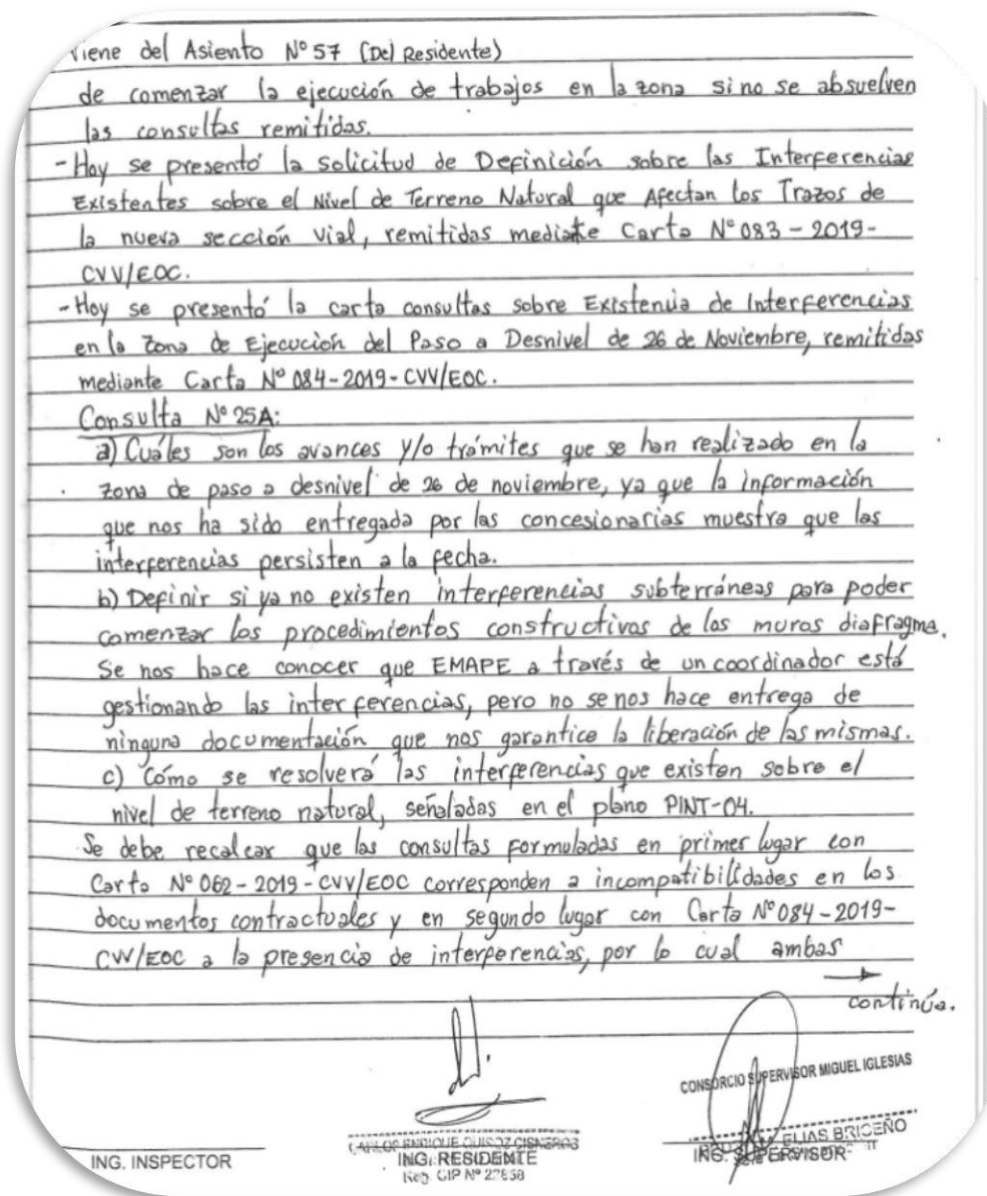 Viene del Asiento N° 57 (Del Residente)
de comenzar la ejecución de trabajos en la zona si no se absuelven
las consultas remitidas.
- Hoy se presentó la Solicitud de Definición sobre las Interferencias
Existentes sobre el Nivel de Terreno Natural que Afectan Los Trazos de
la nueva sección vial, remitidas mediante Carta N° 083-2019-
CVV/EOC.
- Hoy se presentó la carta consultas sobre Existencia de Interferencias
en la Zona de Ejecución del Paso a Desnivel de 26 de Noviembre, remitidas
mediante Carta N° 084-2019-CVV/EOC.
Consulta N° 25A:
a) Cuáles son los avances y/o trámites que se han realizado en la
zona de paso a desnivel de 26 de noviembre, ya que la información
que nos ha sido entregada por las concesionarias muestra que las
interferencias persisten a la fecha.
b) Definir si ya no existen interferencias subterráneas para poder
comenzar los procedimientos constructivos de los muros diafragma.
Se nos hace conocer que EMAPE a través de un coordinador está
gestionando las interferencias, pero no se nos hace entrega de
ninguna documentación que nos garantice la liberación de las mismas.
c) Cómo se resolverá las interferencias que existen sobre el
nivel de terreno natural, señaladas en el plano PINT-04.
Se debe recalcar que las consultas formuladas en primer lugar con
Carta N° 062-2019-CVV/EOC corresponden a incompatibilidades en los
documentos contractuales y en segundo lugar con Carta N° 084-2019-
CVV/EOC a la presencia de interferencias, por lo cual ambas
continúa.
CONSORCIO SUPERVISOR MIGUEL IGLESIAS
CARLOS ENRIQUE QUIROZ CISNEROS
ELIAS BRICEÑO
ING. INSPECTOR
ING. RESIDENTE
ING. SUPERVISOR
Reg. CIP N°